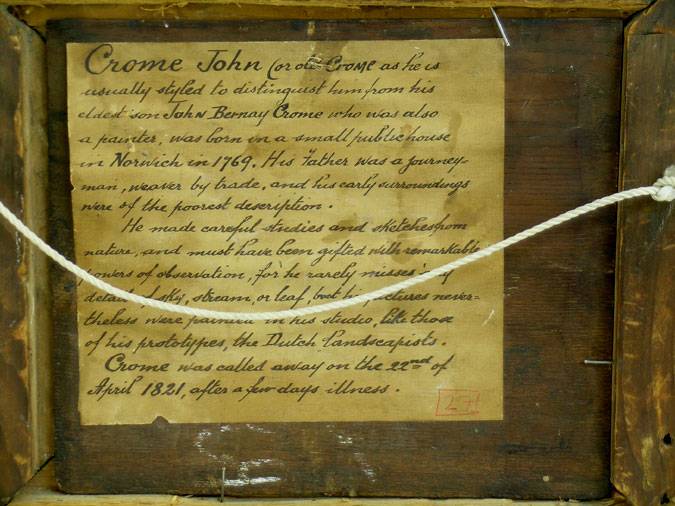 Crome John (or old Crome as he is
usually styled to distinguist him from his
eldest son John Bernay Crome who was also
a painter, was born in a small public house
in Norwich in 1769. His Father was a journey-
man, weaver by trade, and his early surroundings
were of the poorest description.
He made careful studies and sketches from
nature, and must have been gifted with remarkable
powers of observation, for he rarely misses any
detail of sky, stream, or leaf, but his pictures never=
theless were painted in his studio, like those
of his prototypes, the Dutch landscapists.
Crome was called away on the 22nd of
April 1821, after a few days illness.
27